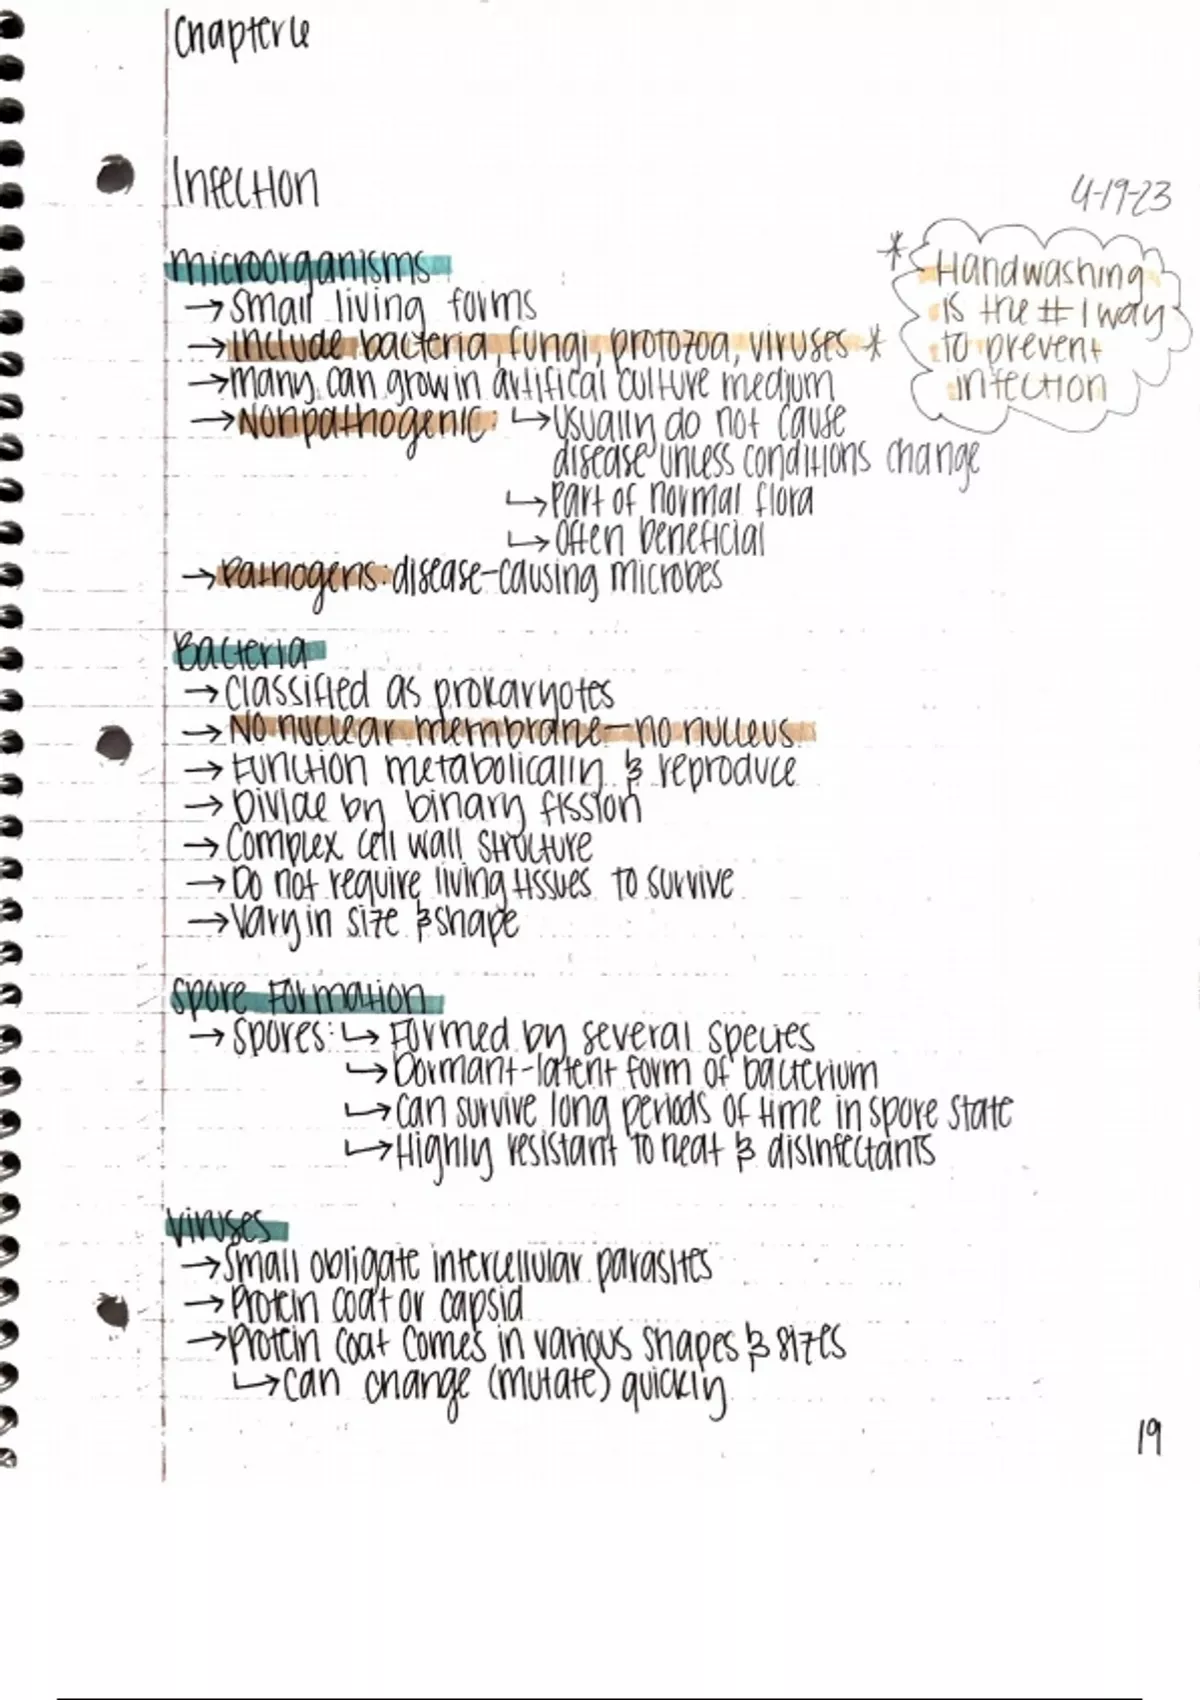 Chapter 6
Infection
4-19-23
Microorganisms
→ Small living forms
→ Include bacteria, fungi, protozoa, viruses *
→ Many can grow in artifical culture medium
→ Nonpathogenic: ↳ Usually do not cause
disease unless conditions change
↳ Part of normal flora
↳ Often beneficial
→ Pathogens: disease-causing microbes
* Handwashing
is the #1 way
to prevent
infection
Bacteria
→ Classified as prokaryotes
→ No nuclear membrane — no nucleus
→ Function metabolically & reproduce
→ Divide by binary fission
→ Complex cell wall structure
→ Do not require living tissues to survive
→ Vary in size & shape
Spore Formation
→ Spores: ↳ Formed by several species
↳ Dormant-latent form of bacterium
↳ Can survive long periods of time in spore state
↳ Highly resistant to heat & disinfectants
Viruses
→ Small obligate intercellular parasites
→ Protein coat or capsid
→ Protein coat comes in various shapes & sizes
↳ Can change (mutate) quickly
19